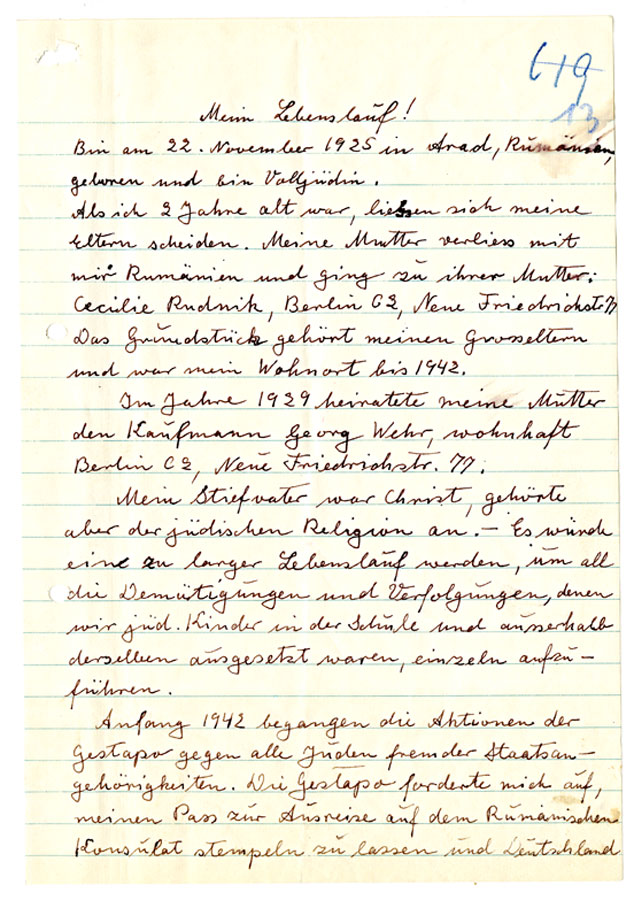 619
13
Mein Lebenslauf!
Bin am 22. November 1925 in Arad, Rumänien,
geboren und bin Volljüdin.
Als ich 2 Jahre alt war, liessen sich meine
Eltern scheiden. Meine Mutter verliess mit
mir Rumänien und ging zu ihrer Mutter:
Cecilie Rudnik, Berlin C2, Neue Friedrichstr 77
Das Grundstück gehört meinen Grosseltern
und war mein Wohnort bis 1942.
Im Jahre 1929 heiratete meine Mutter
den Kaufmann Georg Wehr, wohnhaft
Berlin C2, Neue Friedrichstr. 77.
Mein Stiefvater war Christ, gehörte
aber der jüdischen Religion an. – Es würde
eine zu langer Lebenslauf werden, um all
die Demütigungen und Verfolgungen, denen
wir jüd. Kinder in der Schule und ausserhalb
derselben ausgesetzt waren, einzeln aufzu-
führen.
Anfang 1942 begangen die Aktionen der
Gestapo gegen alle Juden fremder Staatsan-
gehörigkeiten. Die Gestapo forderte mich auf,
meinen Pass zur Ausreise auf dem Rumänischen
Konsulat stempeln zu lassen und Deutschland